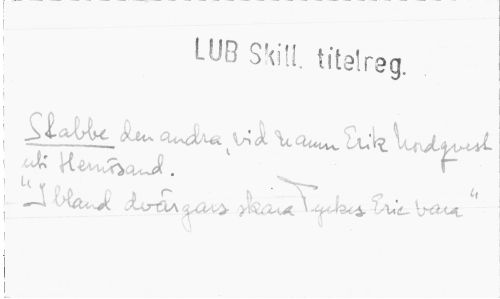 LUB Skill. titelreg.
Skabbe den andra, vid namn Erik Nordqvest
uti Hernösand.
"Ibland dvärgars skara Tyckes Eric vara"